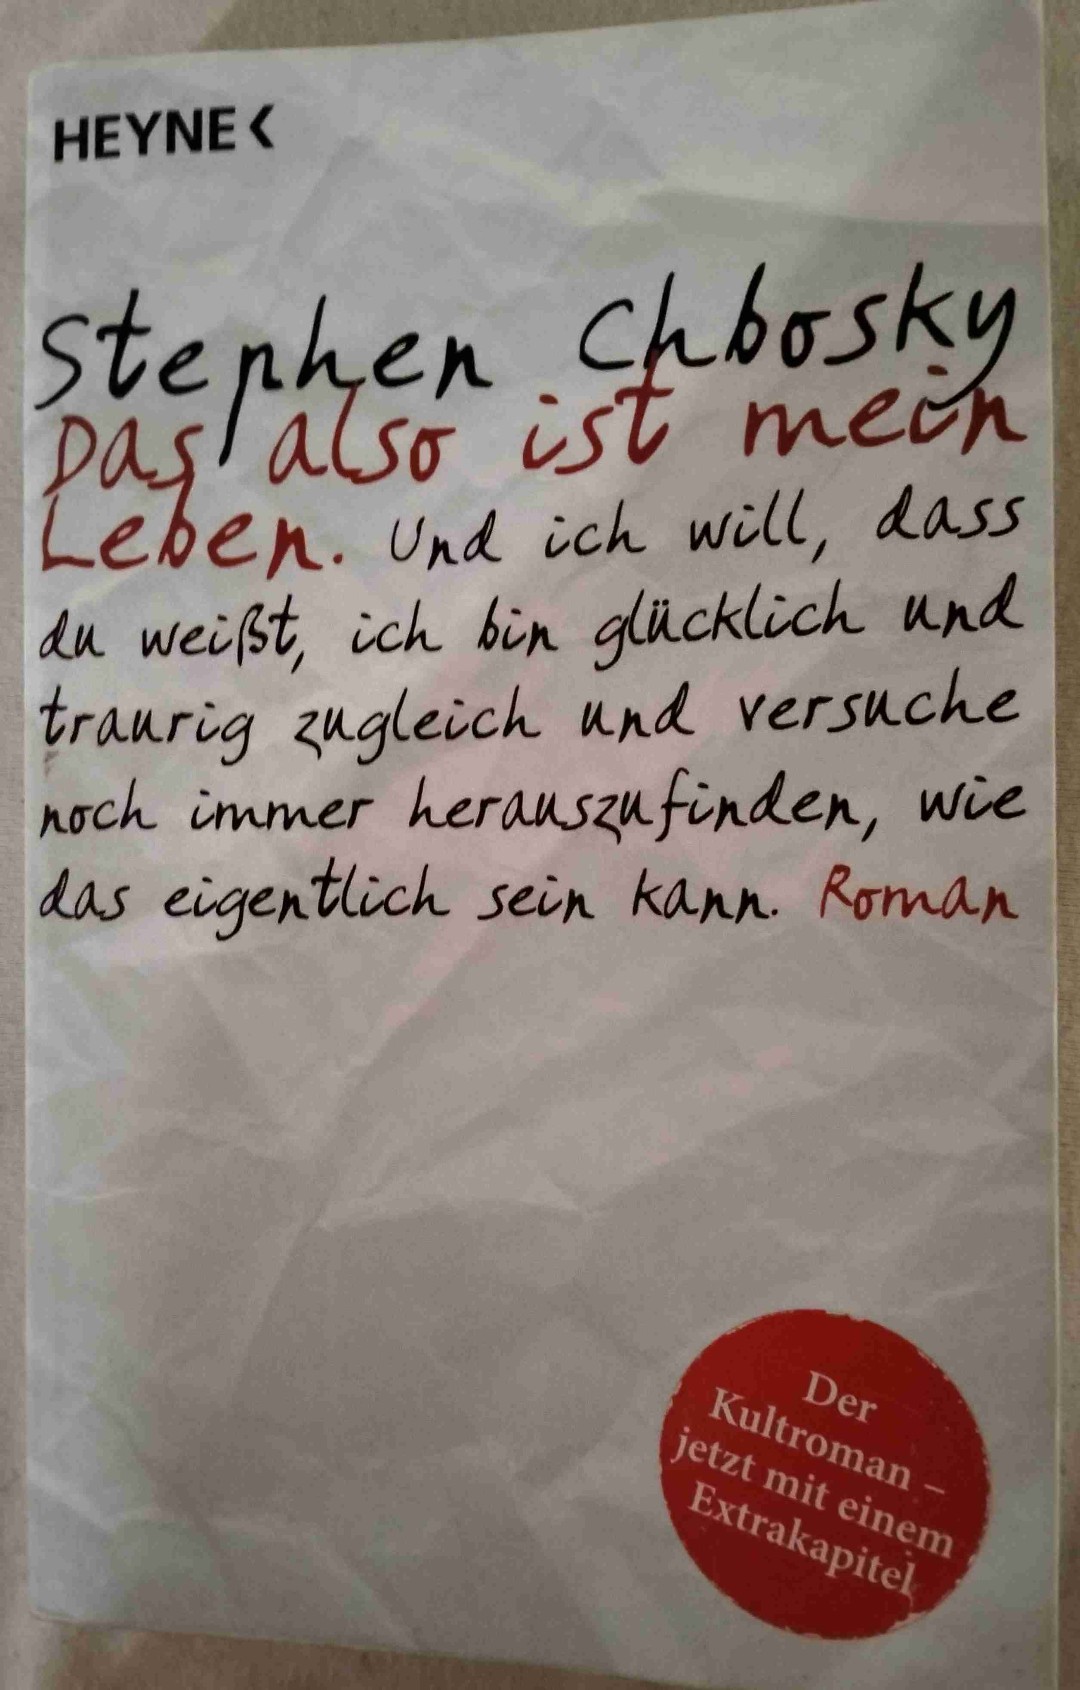 HEYNE<
Stephen Chbosky
Das also ist mein
Leben. Und ich will, dass
du weißt, ich bin glücklich und
traurig zugleich und versuche
noch immer herauszufinden, wie
das eigentlich sein kann. Roman
Der
Kultroman –
jetzt mit einem
Extrakapitel